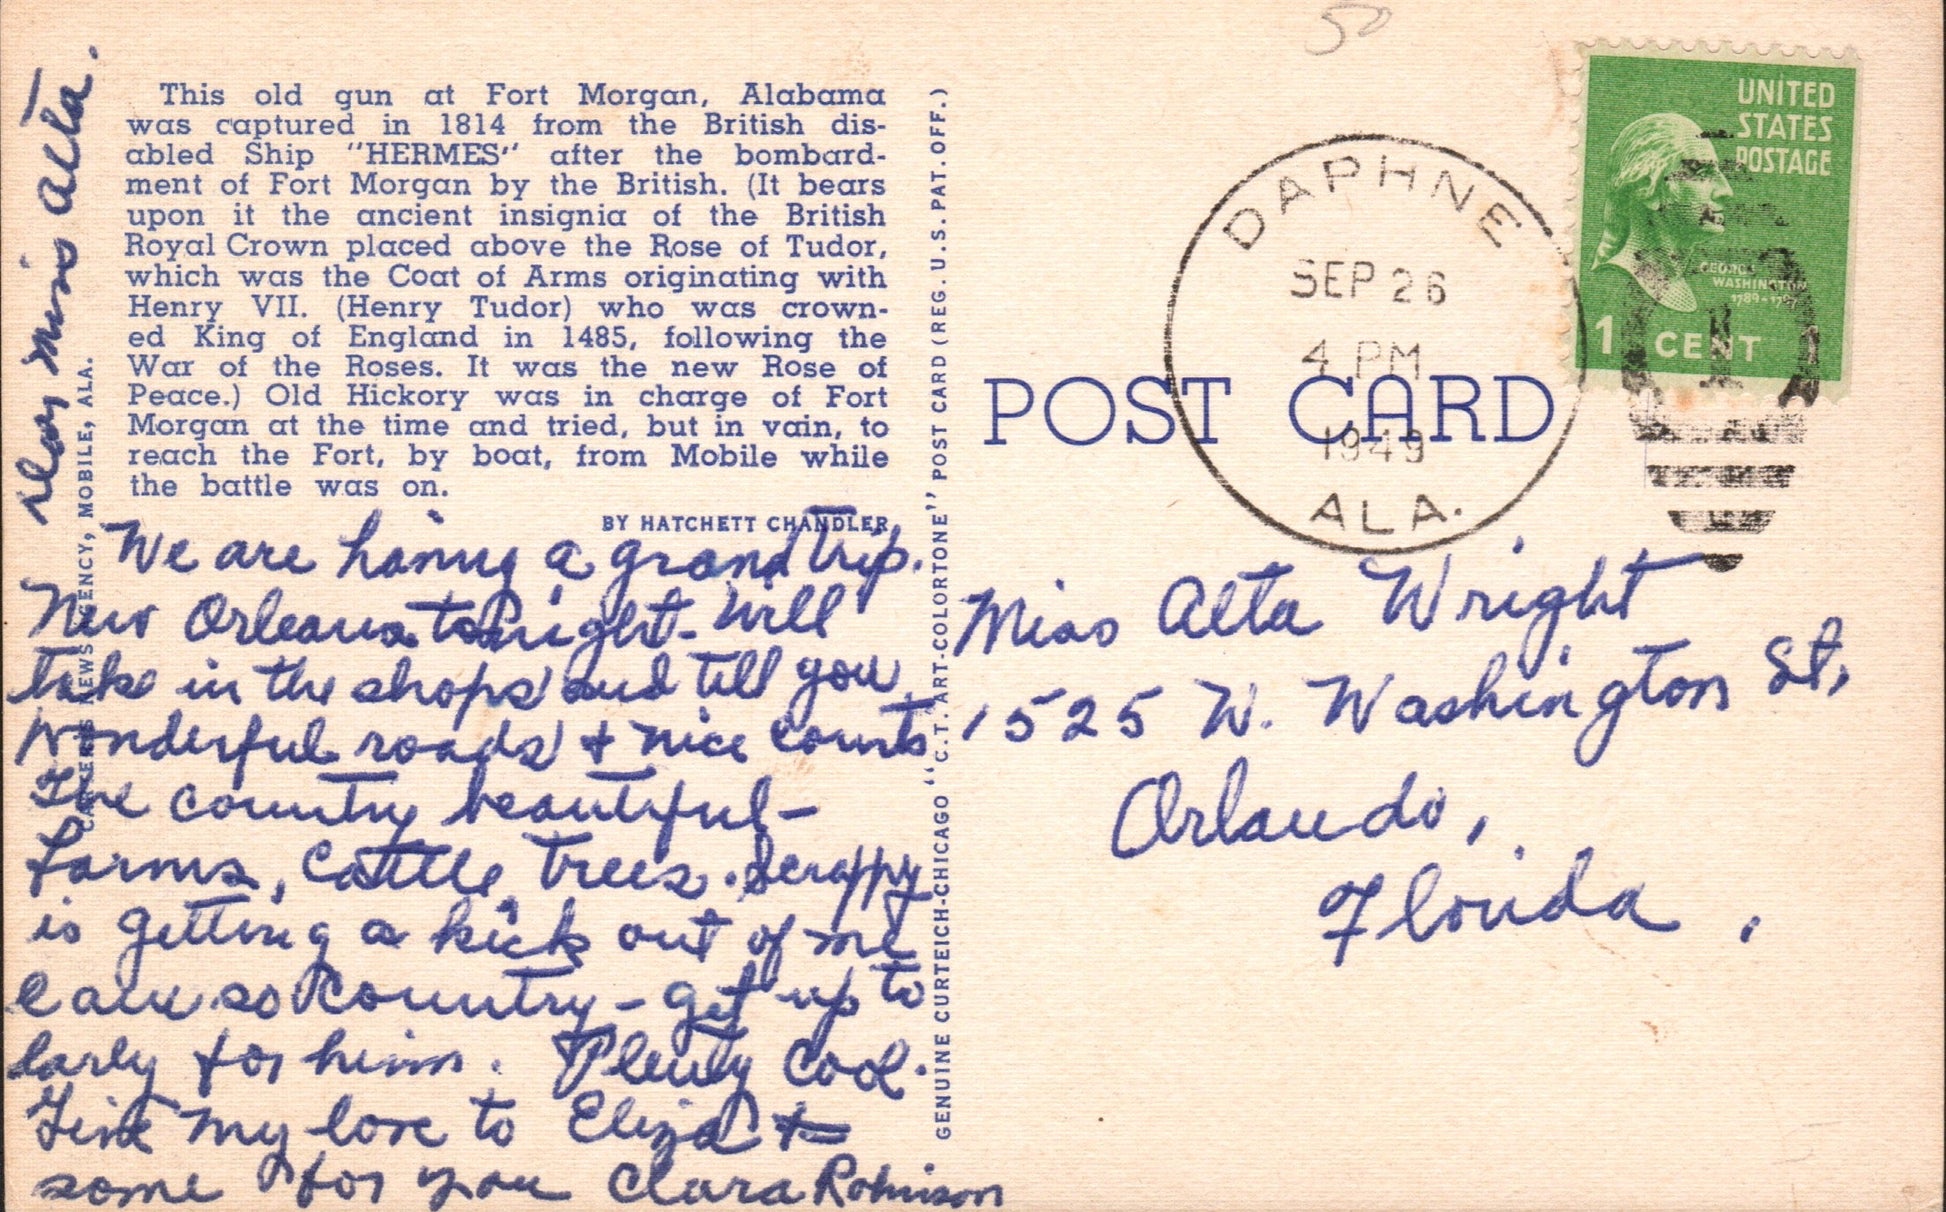 50
This old gun at Fort Morgan, Alabama
was captured in 1814 from the British dis-
abled Ship "HERMES" after the bombard-
ment of Fort Morgan by the British. (It bears
upon it the ancient insignia of the British
Royal Crown placed above the Rose of Tudor,
which was the Coat of Arms originating with
Henry VII. (Henry Tudor) who was crown-
ed King of England in 1485, following the
War of the Roses. It was the new Rose of
Peace.) Old Hickory was in charge of Fort
Morgan at the time and tried, but in vain, to
reach the Fort, by boat, from Mobile while
the battle was on.
BY HATCHETT CHANDLER
NEWS AGENCY, MOBILE, ALA.
GENUINE CURTEICH-CHICAGO "C.T. ART-COLORTONE" POST CARD (REG. U.S. PAT. OFF.)
POST CARD
DAPHNE
SEP 26
4 PM
1949
ALA.
UNITED
STATES
POSTAGE
GEORGE
WASHINGTON
1789-1797
1 CENT
Dear Miss Alta.
We are having a grand trip.
New Orleans tonight - Will
take in the shops and tell you
wonderful roads & nice courts
The country beautiful -
Farms, Cattle, Trees. Scrappy
is getting a kick out of me
so country - get up to
early for him. Plenty Cool.
Give my love to Eliza &
some for you Clara Robinson
Miss Alta Wright
1525 W. Washington St,
Orlando,
Florida.